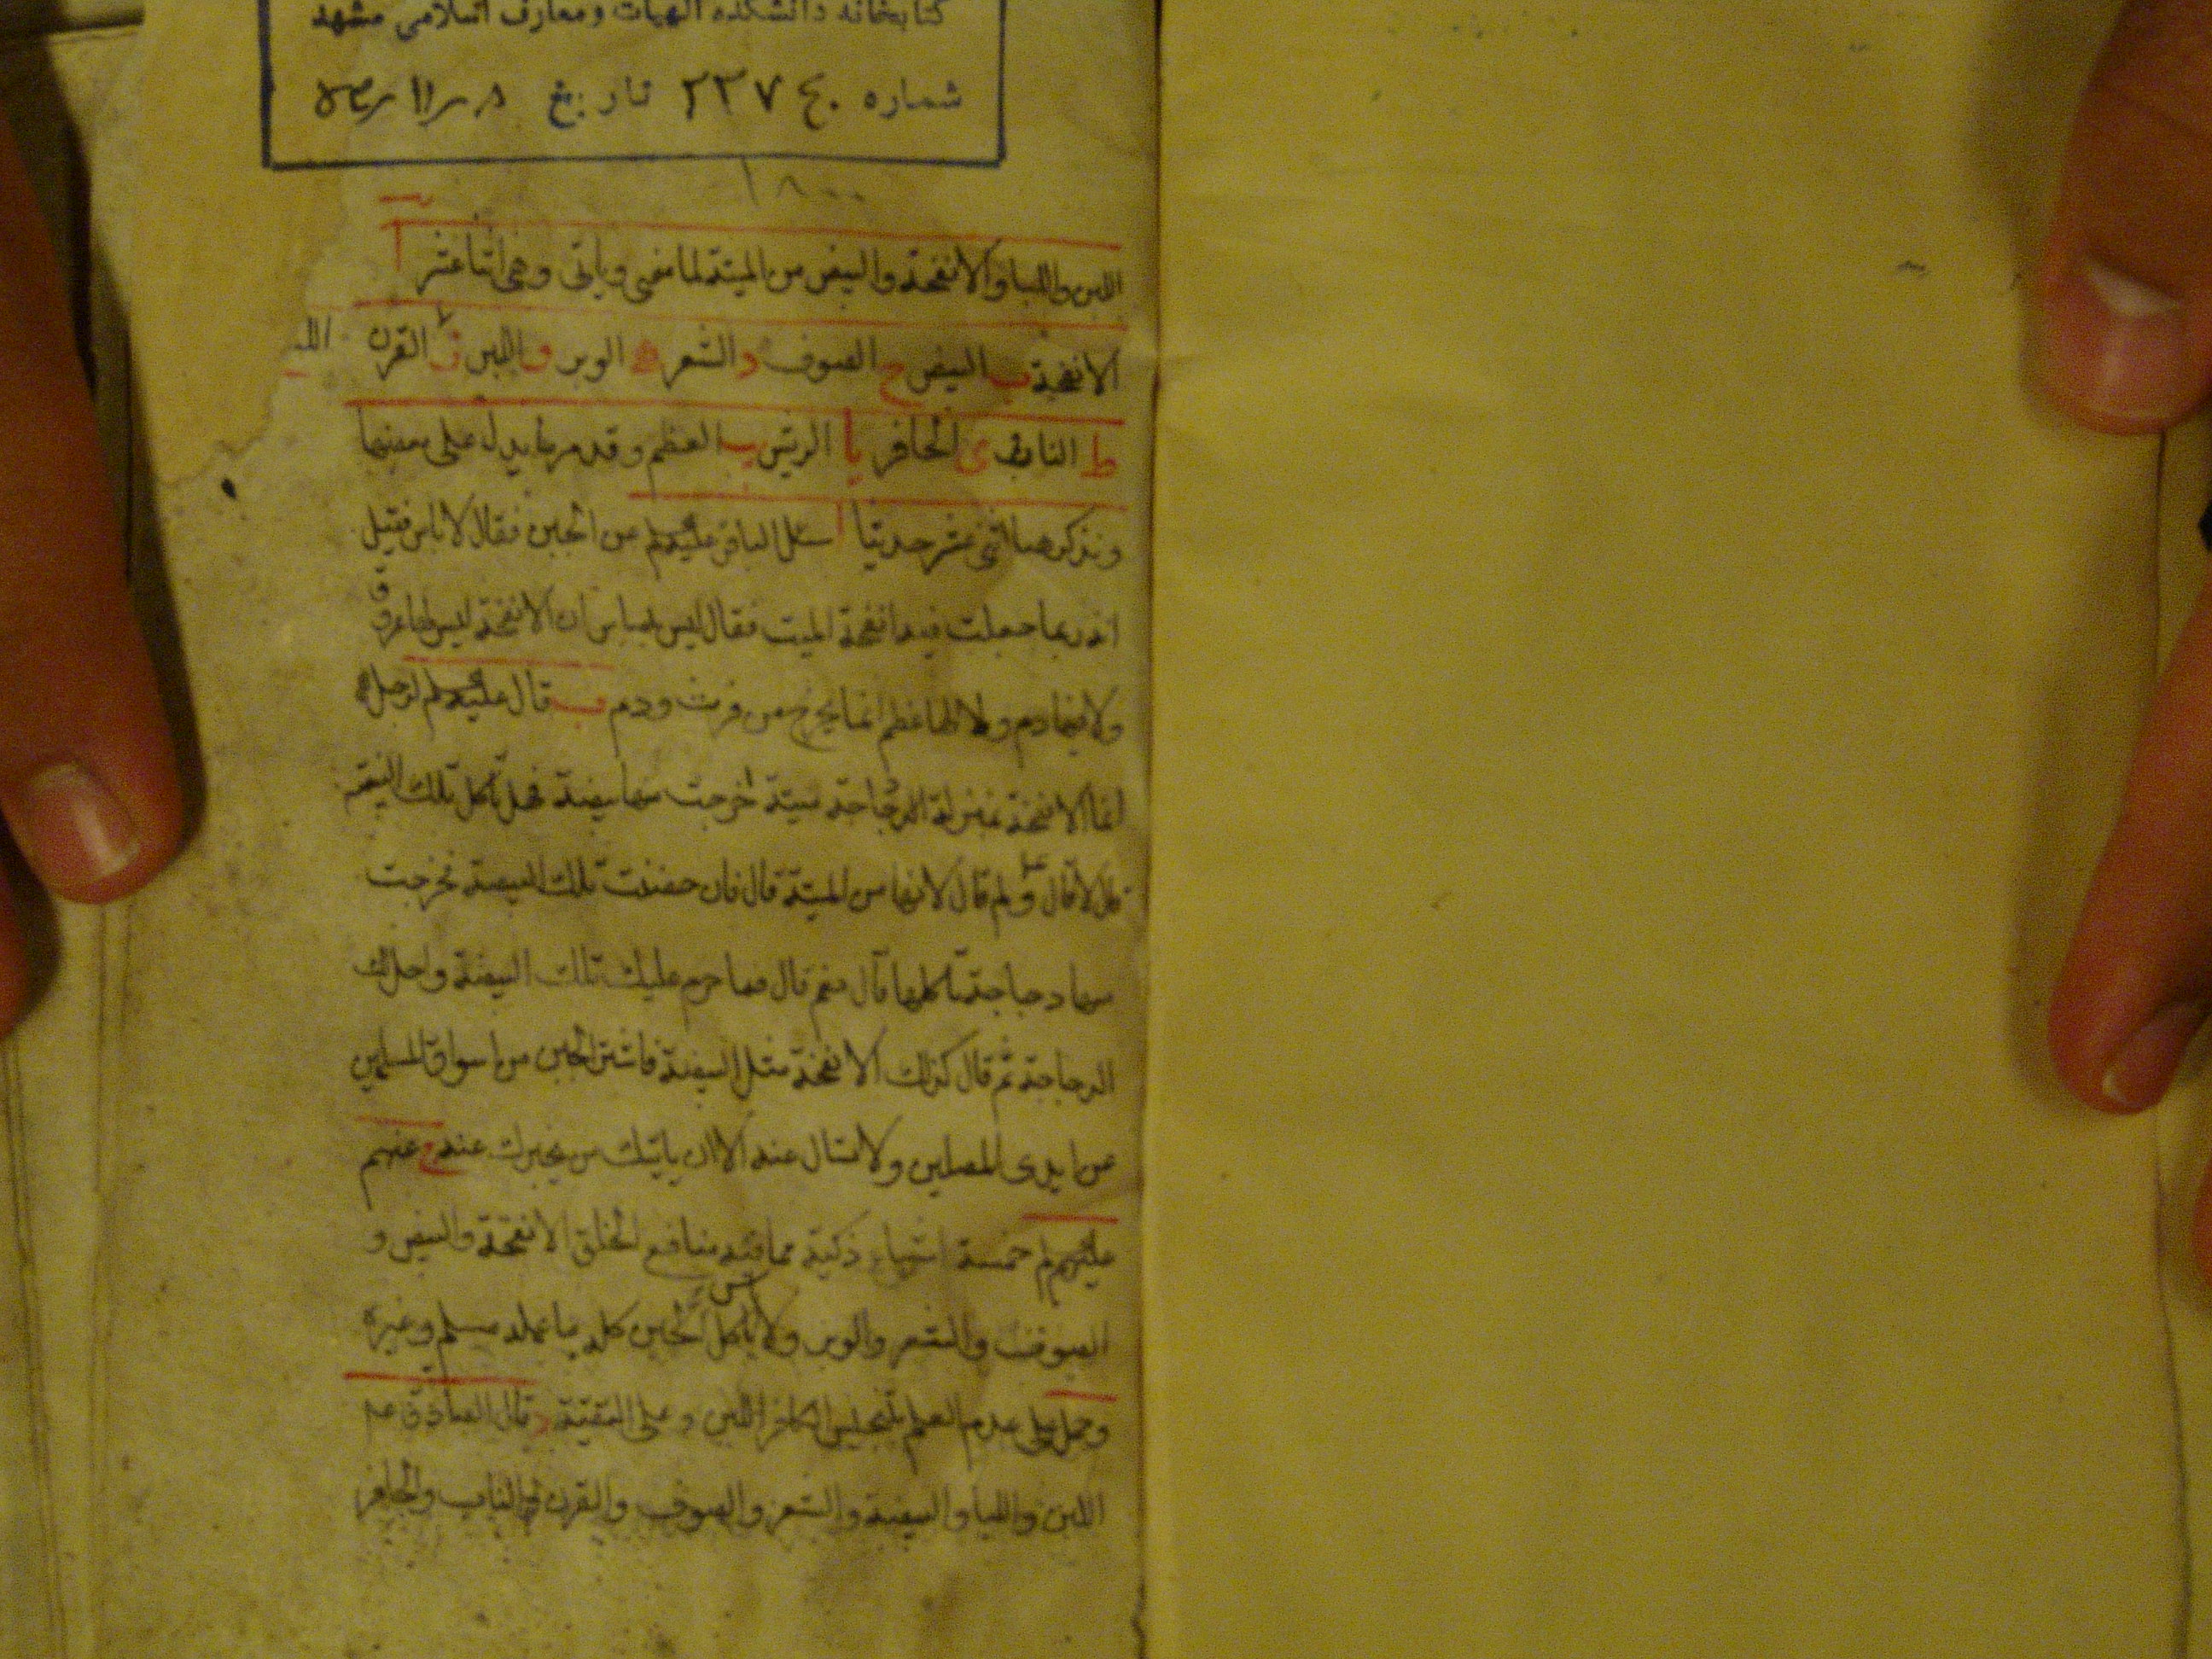 کتابخانه دانشکده الهیات و معارف اسلامی مشهد
شماره ۲۳۷۴۰ تاریخ
۱۸۰۰
اللبن واللباؤ الانفحة والبیض من المیتة لما مضی ویاتی وهی اثنا عشر ا
الانفحة ب البیض ج الصوف د الشعر ه الوبر و اللبن ز القرن
ط الناب ی الحافر یا الریش یب العظم وقد مر ما یدل علی بعضها
ونذکر هنا اثنی عشر حدیثا ا سئل الباقر علیهلم عن الجبن فقال لا باس فقیل
انه ربما جعلت فیه انفحة المیت فقال لیس بها باس ان الانفحة لیس لها عروق
ولا فیها دم ولا لها عظم انما یخرج من فرث ودم ب قال علیهلم لرجل
انما الانفحة بمنزلة الدجاجة میتة اخرجت منها بیضة فهل تاکل تلک البیضة
قال لا قال ولم قال لانها من المیتة قال فان حضنت تلک البیضة فخرجت
منها دجاجة تاکلها قال نعم قال فما حرم علیک تلک البیضة واحل لک
الدجاجة ثم قال کذلک الانفحة مثل البیضة فاشتر الجبن من اسواق المسلمین
من ایدی المصلین ولا تسال عنه الا ان یاتیک من یخبرک عنه ج عنهم
علیهم لم خمسة اشیاء ذکیة مما فیه منافع الخلق الانفحة والبیض و
الصوف والشعر والوبر ولا باس یاکل الجبن کله ما عمله مسلم وغیره
وحمل علی عدم العلم بتنجیس الکافر اللبن وعلی التقیة د قال الصادق عم
اللبن واللباؤ البیضة والشعر والصوف والقرن والناب والحافر